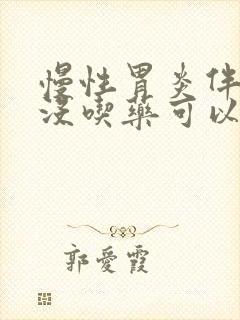 慢性胃炎伴
没喫藥可以
郭愛霞